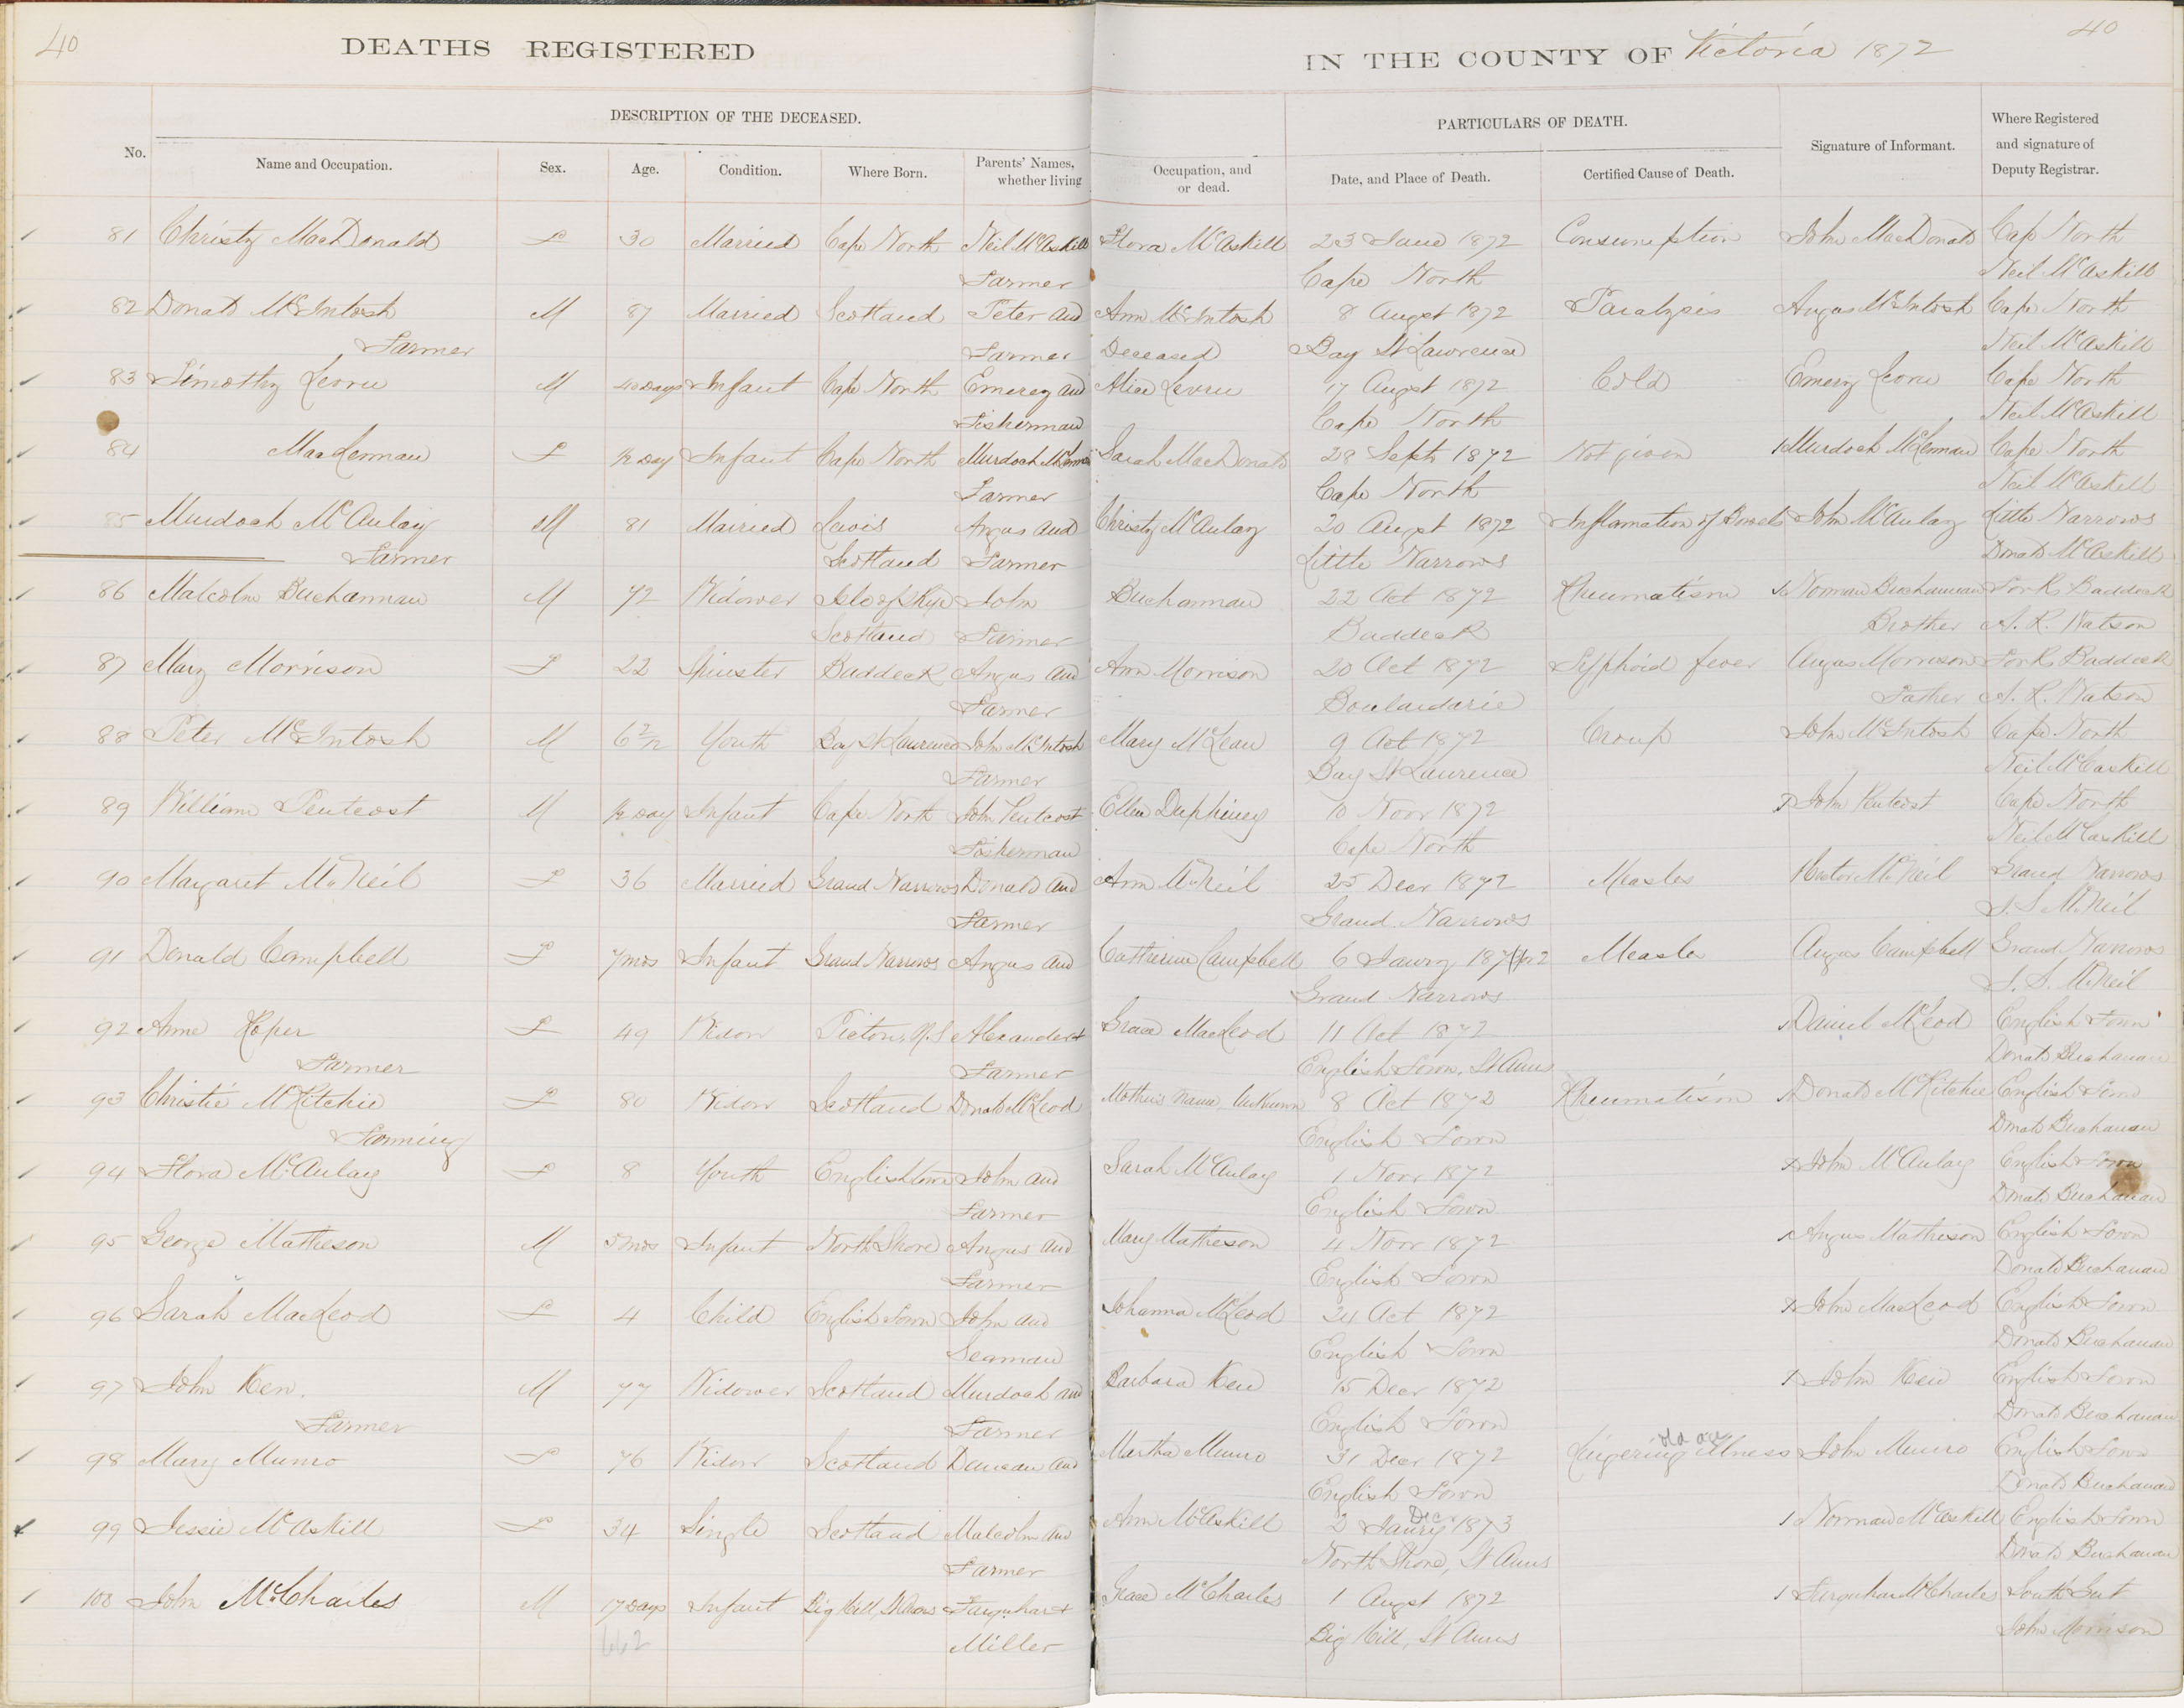 40
DEATHS REGISTERED
IN THE COUNTY OF Victoria 1872
40
DESCRIPTION OF THE DECEASED.
PARTICULARS OF DEATH.
No.
Name and Occupation.
Sex.
Age.
Condition.
Where Born.
Parents' Names, whether living
Occupation, and or dead.
Date, and Place of Death.
Certified Cause of Death.
Signature of Informant.
Where Registered and signature of Deputy Registrar.
81 Christy MacDonald F 30 Married Cape North Neil McAskill Flora McAskill 23 June 1872 Consumption John MacDonald Cape North
Farmer Cape North Neil McAskill
82 Donald McIntosh M 87 Married Scotland Peter and Ann McIntosh 8 Augst 1872 Paralysis Angus McIntosh Cape North
Farmer Farmer Deceased Bay St Lawrence Neil McAskill
83 Timothy M 40 Days Infant Cape North Emerey and Alice 17 Augst 1872 Cold Emery Cape North
Fisherman Cape North Neil McAskill
84 MacLennan F ½ Day Infant Cape North Murdoch McLennan Sarah MacDonald 28 Sept 1872 Not given 1 Murdoch McLennan Cape North
Farmer Cape North Neil McAskill
85 Murdoch McAulay M 81 Married Lewis Angus and Christy McAulay 20 Augst 1872 Inflamation of Bowels John McAulay Little Narrows
Farmer Scotland Farmer Little Narrows Donald McAskill
86 Malcolm Buchannan M 72 Widower Isle of Skye John Buchannan 22 Oct 1872 Rheumatism Norman Buchannan Fork Baddeck
Scotland Farmer Baddeck Brother A. R. Watson
87 Mary Morrison F 22 Spinster Baddeck Angus and Ann Morrison 20 Oct 1872 Typhoid fever Angus Morrison Fork Baddeck
Farmer Boulardarie Father A. R. Watson
88 Peter McIntosh M 6 2/12 Youth Bay St Laurence John McIntosh Mary McLean 9 Oct 1872 Croup John McIntosh Cape North
Farmer Bay St Laurence Neil McCaskill
89 William Pentecost M ½ Day Infant Cape North John Pentcost Ellen Duphiney 10 Novr 1872 John Pentcost Cape North
Fisherman Cape North Neil McCaskill
90 Margaret McNeil F 36 Married Grand Narrows Donald and Ann McNeil 25 Decr 1872 Measles Hector McNeil Grand Narrows
Farmer Grand Narrows S. S. McNeil
91 Donald Campbell F 7 mos Infant Grand Narrows Angus and Catherine Campbell 6 Janry 1872 Measles Angus Campbell Grand Narrows
Grand Narrows S. S. McNeil
92 Anne Roper F 49 Widow Pictou, N.S Alexander + Grace MacLeod 11 Oct 1872 Daniel McLeod English Town
Farmer Farmer English Town, St Anns Donald Buchanan
93 Christie McRitchie F 80 Widow Scotland Donald McLeod Mothers Name Unknown 8 Oct 1872 Rheumatism Donald McRitchie English Town
Farming English Town Donald Buchanan
94 Flora McAulay F 8 Youth Englishtown John and Sarah McAulay 1 Novr 1872 John McAulay English Town
Farmer English Town Donald Buchanan
95 George Matheson M 5 mos Infant North Shore Angus and Mary Matheson 4 Novr 1872 Angus Matheson English Town
Farmer English Town Donald Buchanan
96 Sarah MacLeod F 4 Child English Town John and Johanna McLeod 24 Oct 1872 John MacLeod English Town
Seaman English Town Donald Buchanan
97 John Ken. M 77 Widower Scotland Murdoch and Barbara Ken 15 Decr 1872 John Ken English Town
Farmer Farmer English Town Donald Buchanan
98 Mary Munro F 76 Widow Scotland Duncan and Martha Munro 31 Decr 1872 Lingering illness old age John Munro English Town
English Town Donald Buchanan
99 Jessie McAskill F 34 Single Scotland Malcolm and Ann McAskill 2 Janry Decr 1873 1 Norman McAskill English Town
Farmer North Shore, St Anns Donald Buchanan
100 John McCharles M 17 Days Infant Big Hill, St Anns Farquhar + Grace McCharles 1 Augst 1872 1 Farquhar McCharles South Gut
662 Miller Big Hill, St Anns John Morrison